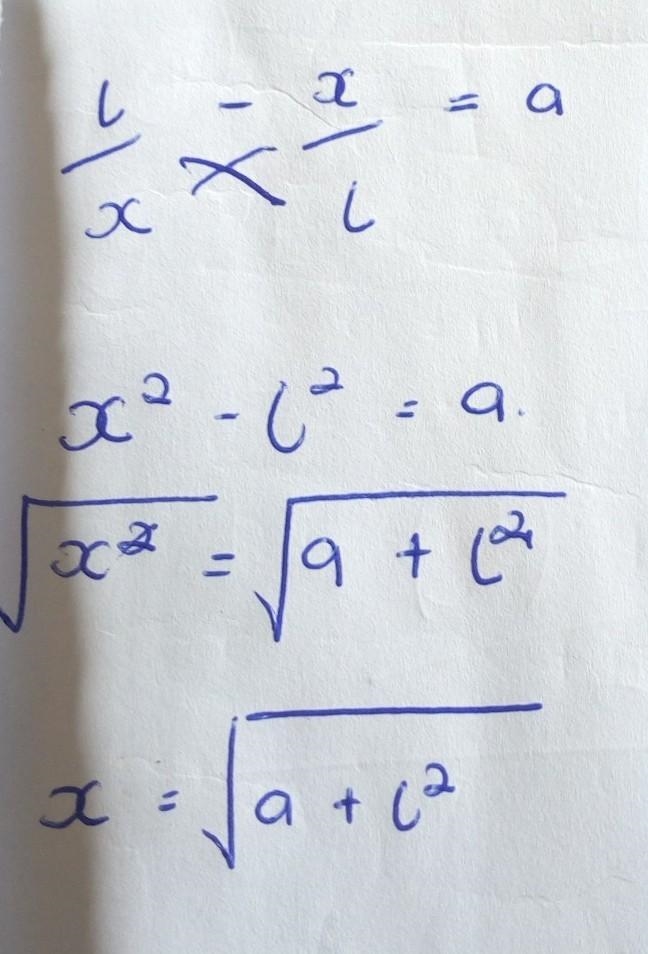 l/x - x/l = a
x² - l² = a.
√x² = √a + l²
x = √a + l²